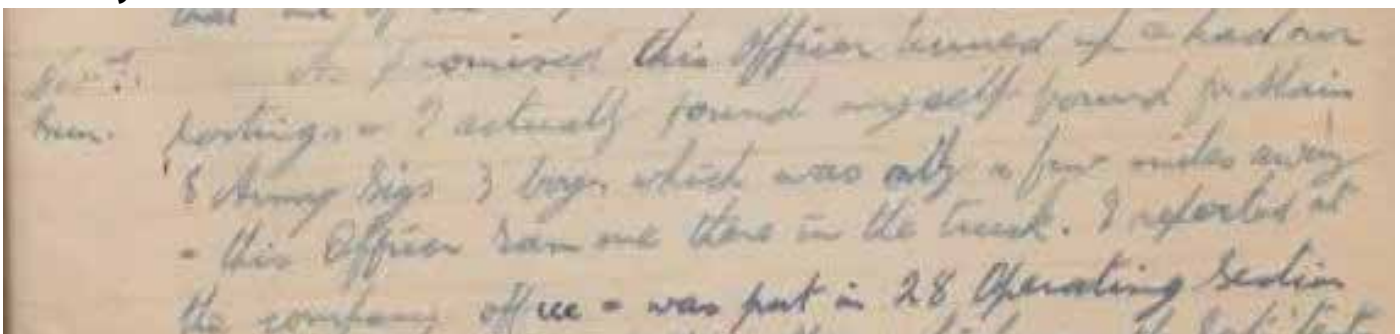 that one of the
As promised this Officer turned up & had our
Sun. postings & I actually found myself bound for Main
8 Army Sigs 3 which was only a few miles away
- this Officer ran me there in the truck. I reported at
the company office & was put in 28 Operating Section